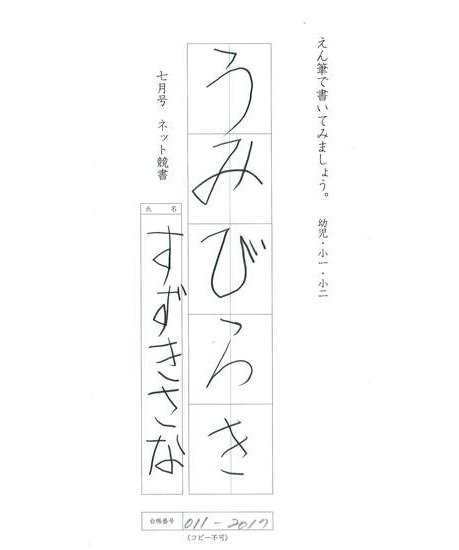 えん筆で書いてみましょう。　幼児・小一・小二
うみびらき
七月号　ネット競書
氏　名
すずきさな
台帳番号 011-2017
(コピー不可)